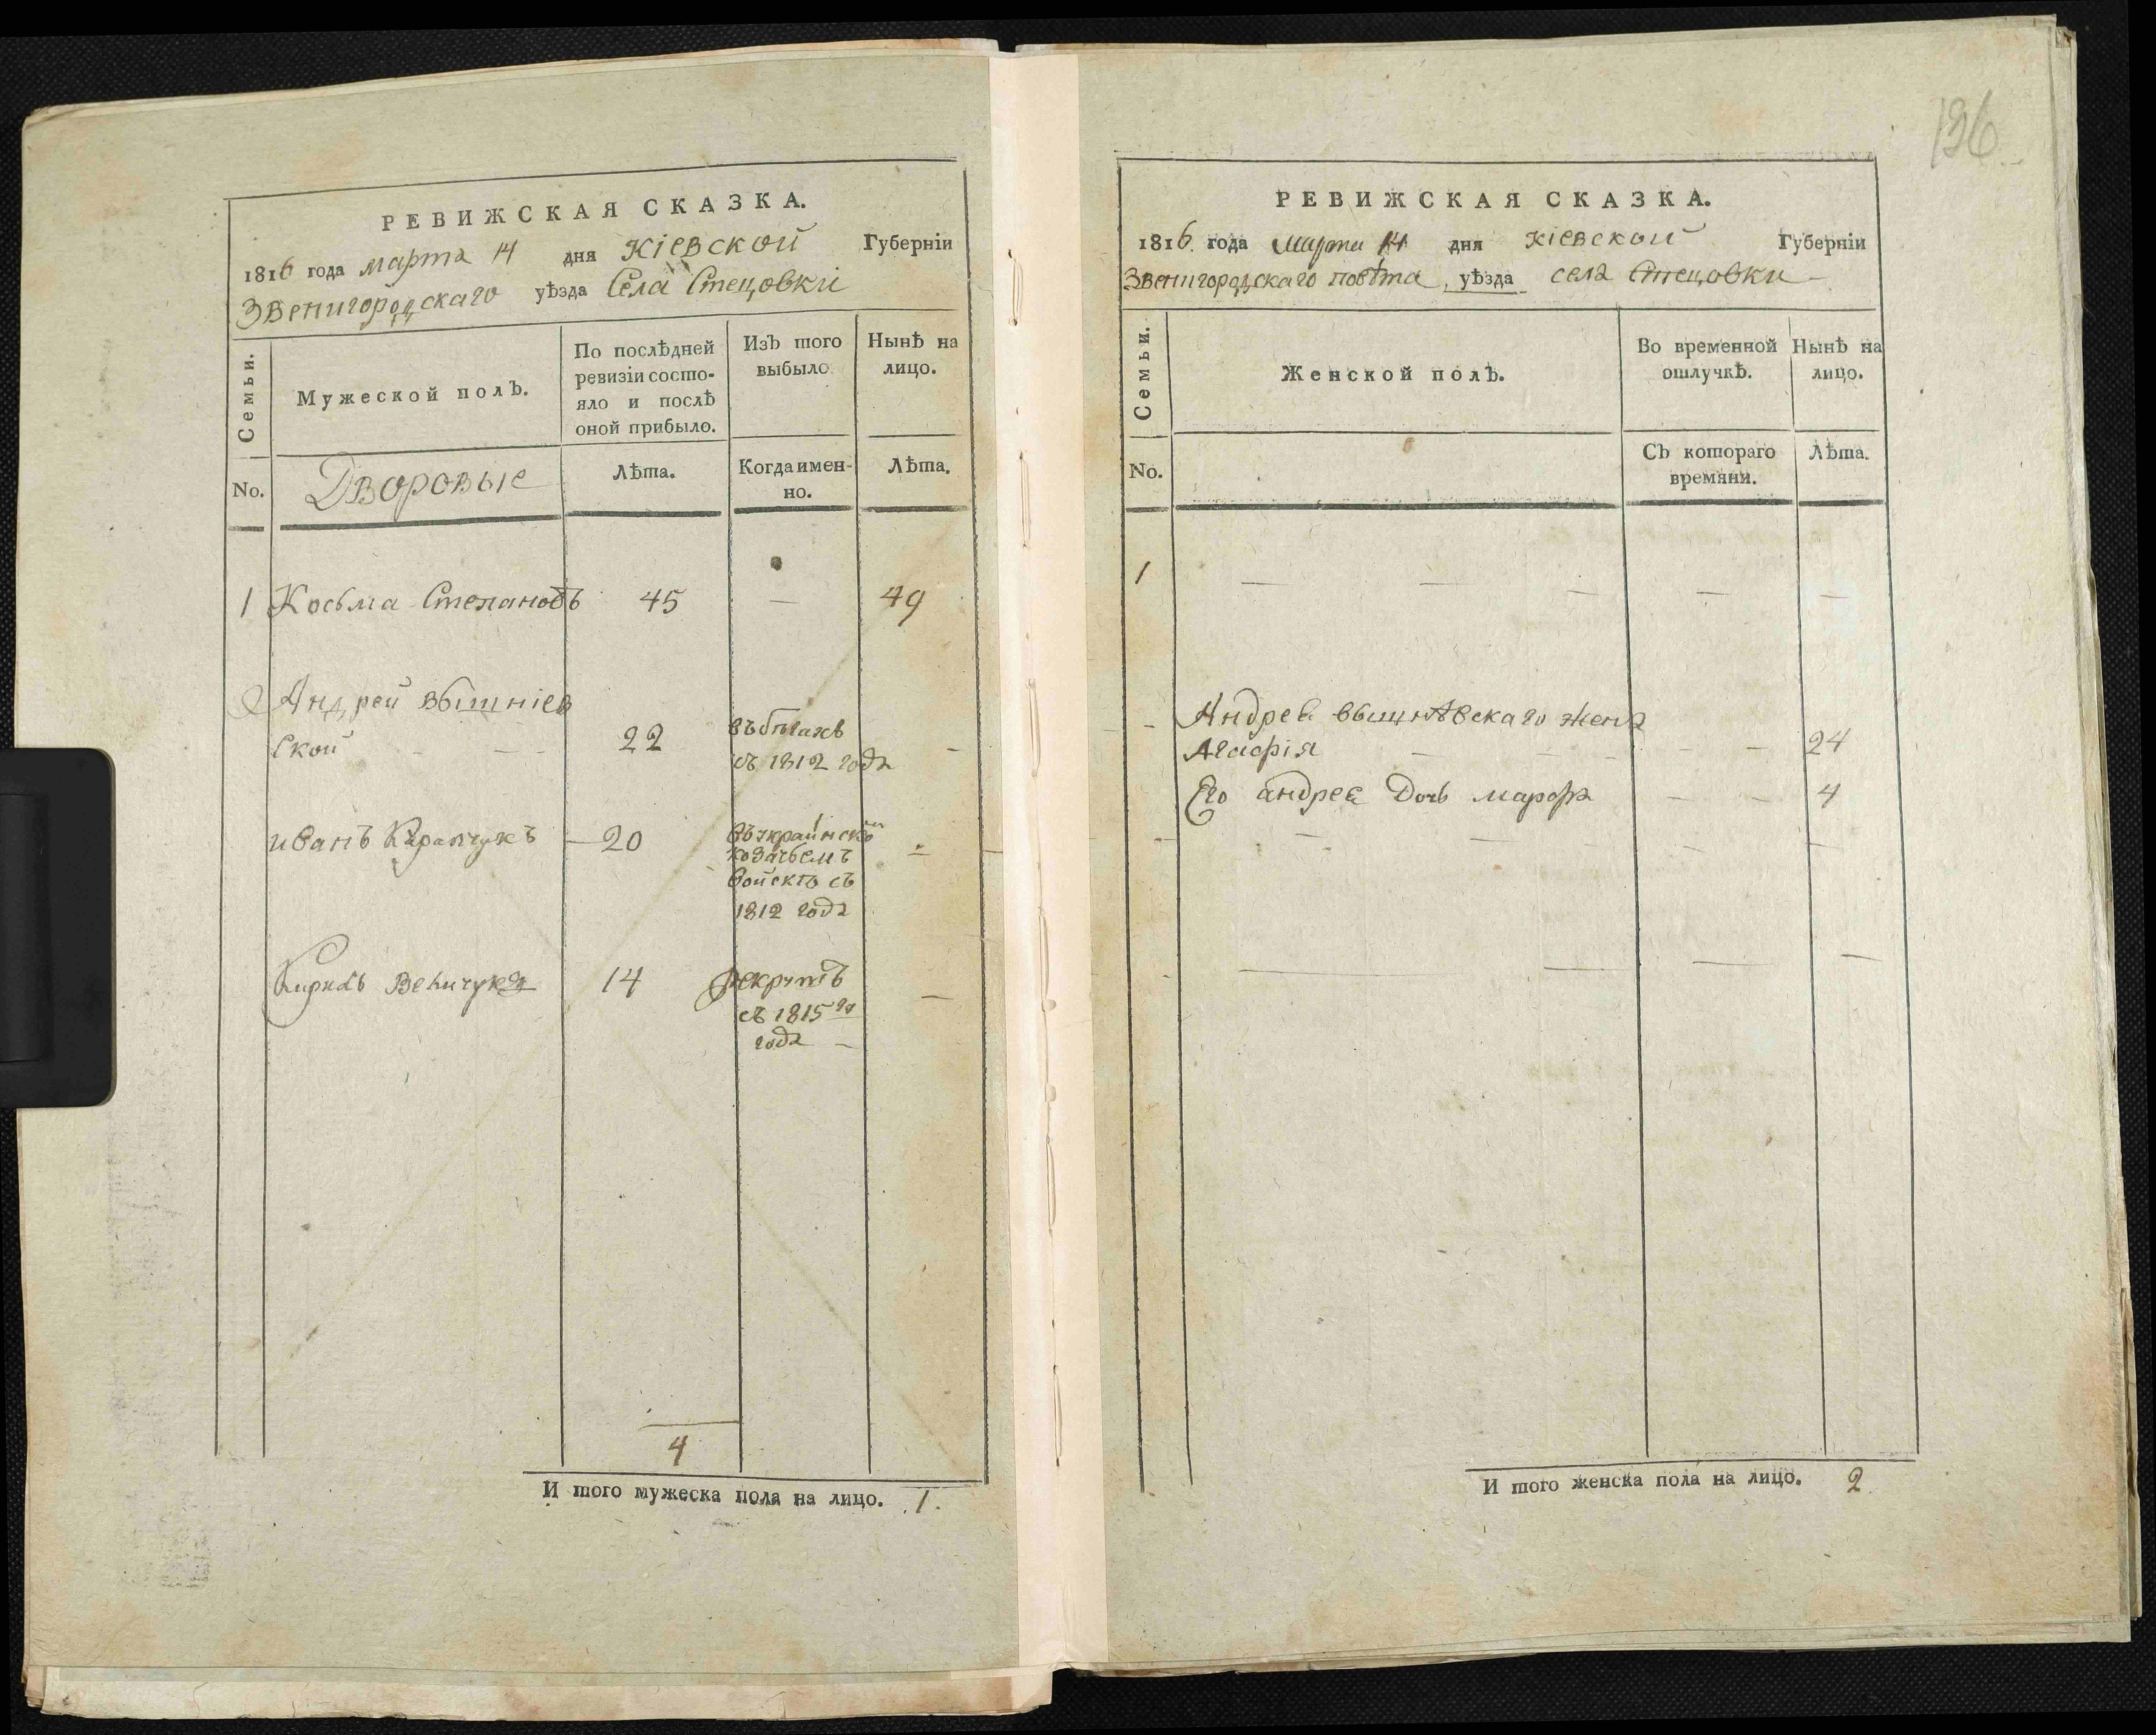 136
РЕВИЖСКАЯ СКАЗКА.
1816 года марта 14 дня Кіевской Губерніи
Звенигородскаго уѣзда Села Стецовки
Семьи.
Мужеской полЪ.
По послѣдней ревизіи состо-
яло и послѣ
оной прибыло.
ИзЪ того
выбыло
НынѢ на
лицо.
No.
Дворовые
Лѣта.
Когда имен-
но.
Лѣта.
1 Косьма Степановъ 45 — 49
2 Андрей Вышніев
ской 22 въ бѣгахъ
съ 1812 года —
иванъ 20 въ украинском
козачьемъ
войскѣ съ
1812 года
14 рекрутъ
съ 1815го
года —
4
И того мужеска пола на лицо. 1.
РЕВИЖСКАЯ СКАЗКА.
1816. года Марта 14 дня Кіевской Губерніи
Звенигородскаго повѣта, уѣзда села Стецовки
Семьи.
Женской полЪ.
Во временной
отлучкѢ.
НынѢ на
лицо.
No.
СЪ котораго
времяни.
Лѣта.
1 — — — — —
Андрея вышнѣвскаго жена
Агафія — — 24
Его андрея Дочь марфа — — 4
И того женска пола на лицо. 2